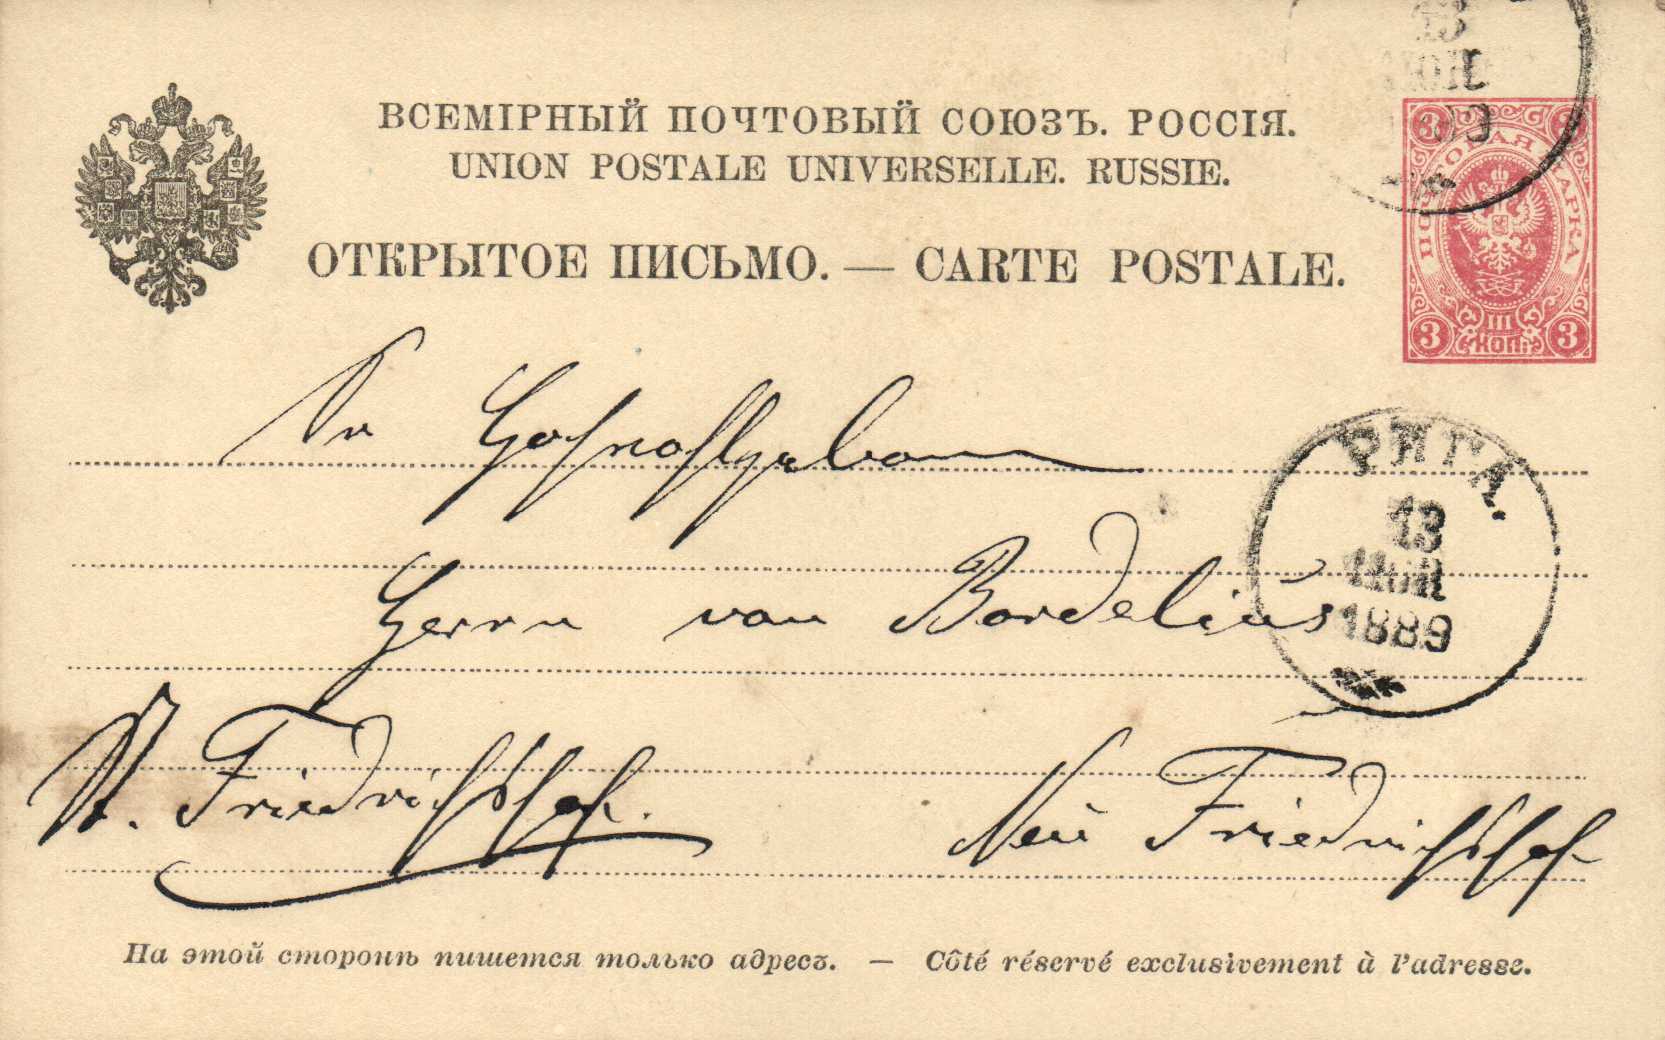 ВСЕМІРНЫЙ ПОЧТОВЫЙ СОЮЗЪ. РОССІЯ.
UNION POSTALE UNIVERSELLE. RUSSIE.
ОТКРЫТОЕ ПИСЬМО. — CARTE POSTALE.
13
ПОЧТОВАЯ МАРКА
3 3
III
3 КОП. 3
Sr Hochwohlgeboren
РИГА.
13
НОЯ
1889
Herrn von Bordelius
N. Friedrichshof.
Neu Friedrichshof
На этой сторонѣ пишется только адресъ. — Côté réservé exclusivement à l'adresse.